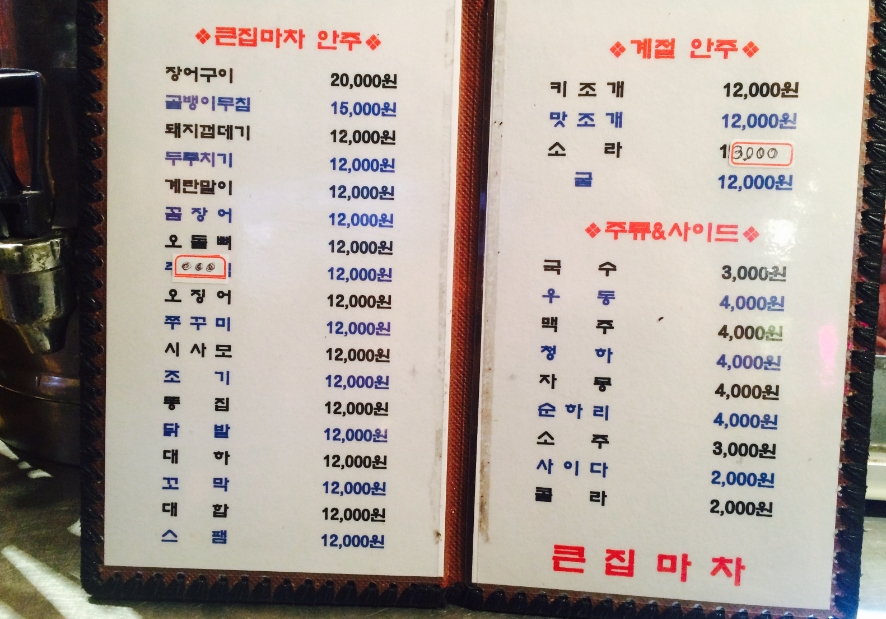 ❖큰집마차 안주❖
장어구이 20,000원
골뱅이무침 15,000원
돼지껍데기 12,000원
두루치기 12,000원
계란말이 12,000원
꼼장어 12,000원
오돌뼈 12,000원
12,000원
오징어 12,000원
쭈꾸미 12,000원
시사모 12,000원
조기 12,000원
똥집 12,000원
닭발 12,000원
대하 12,000원
꼬막 12,000원
대합 12,000원
스팸 12,000원
❖계절 안주❖
키조개 12,000원
맛조개 12,000원
소라 13,000
굴 12,000원
❖주류&사이드❖
국수 3,000원
우동 4,000원
맥주 4,000원
청하 4,000원
자몽 4,000원
순하리 4,000원
소주 3,000원
사이다 2,000원
콜라 2,000원
큰집마차